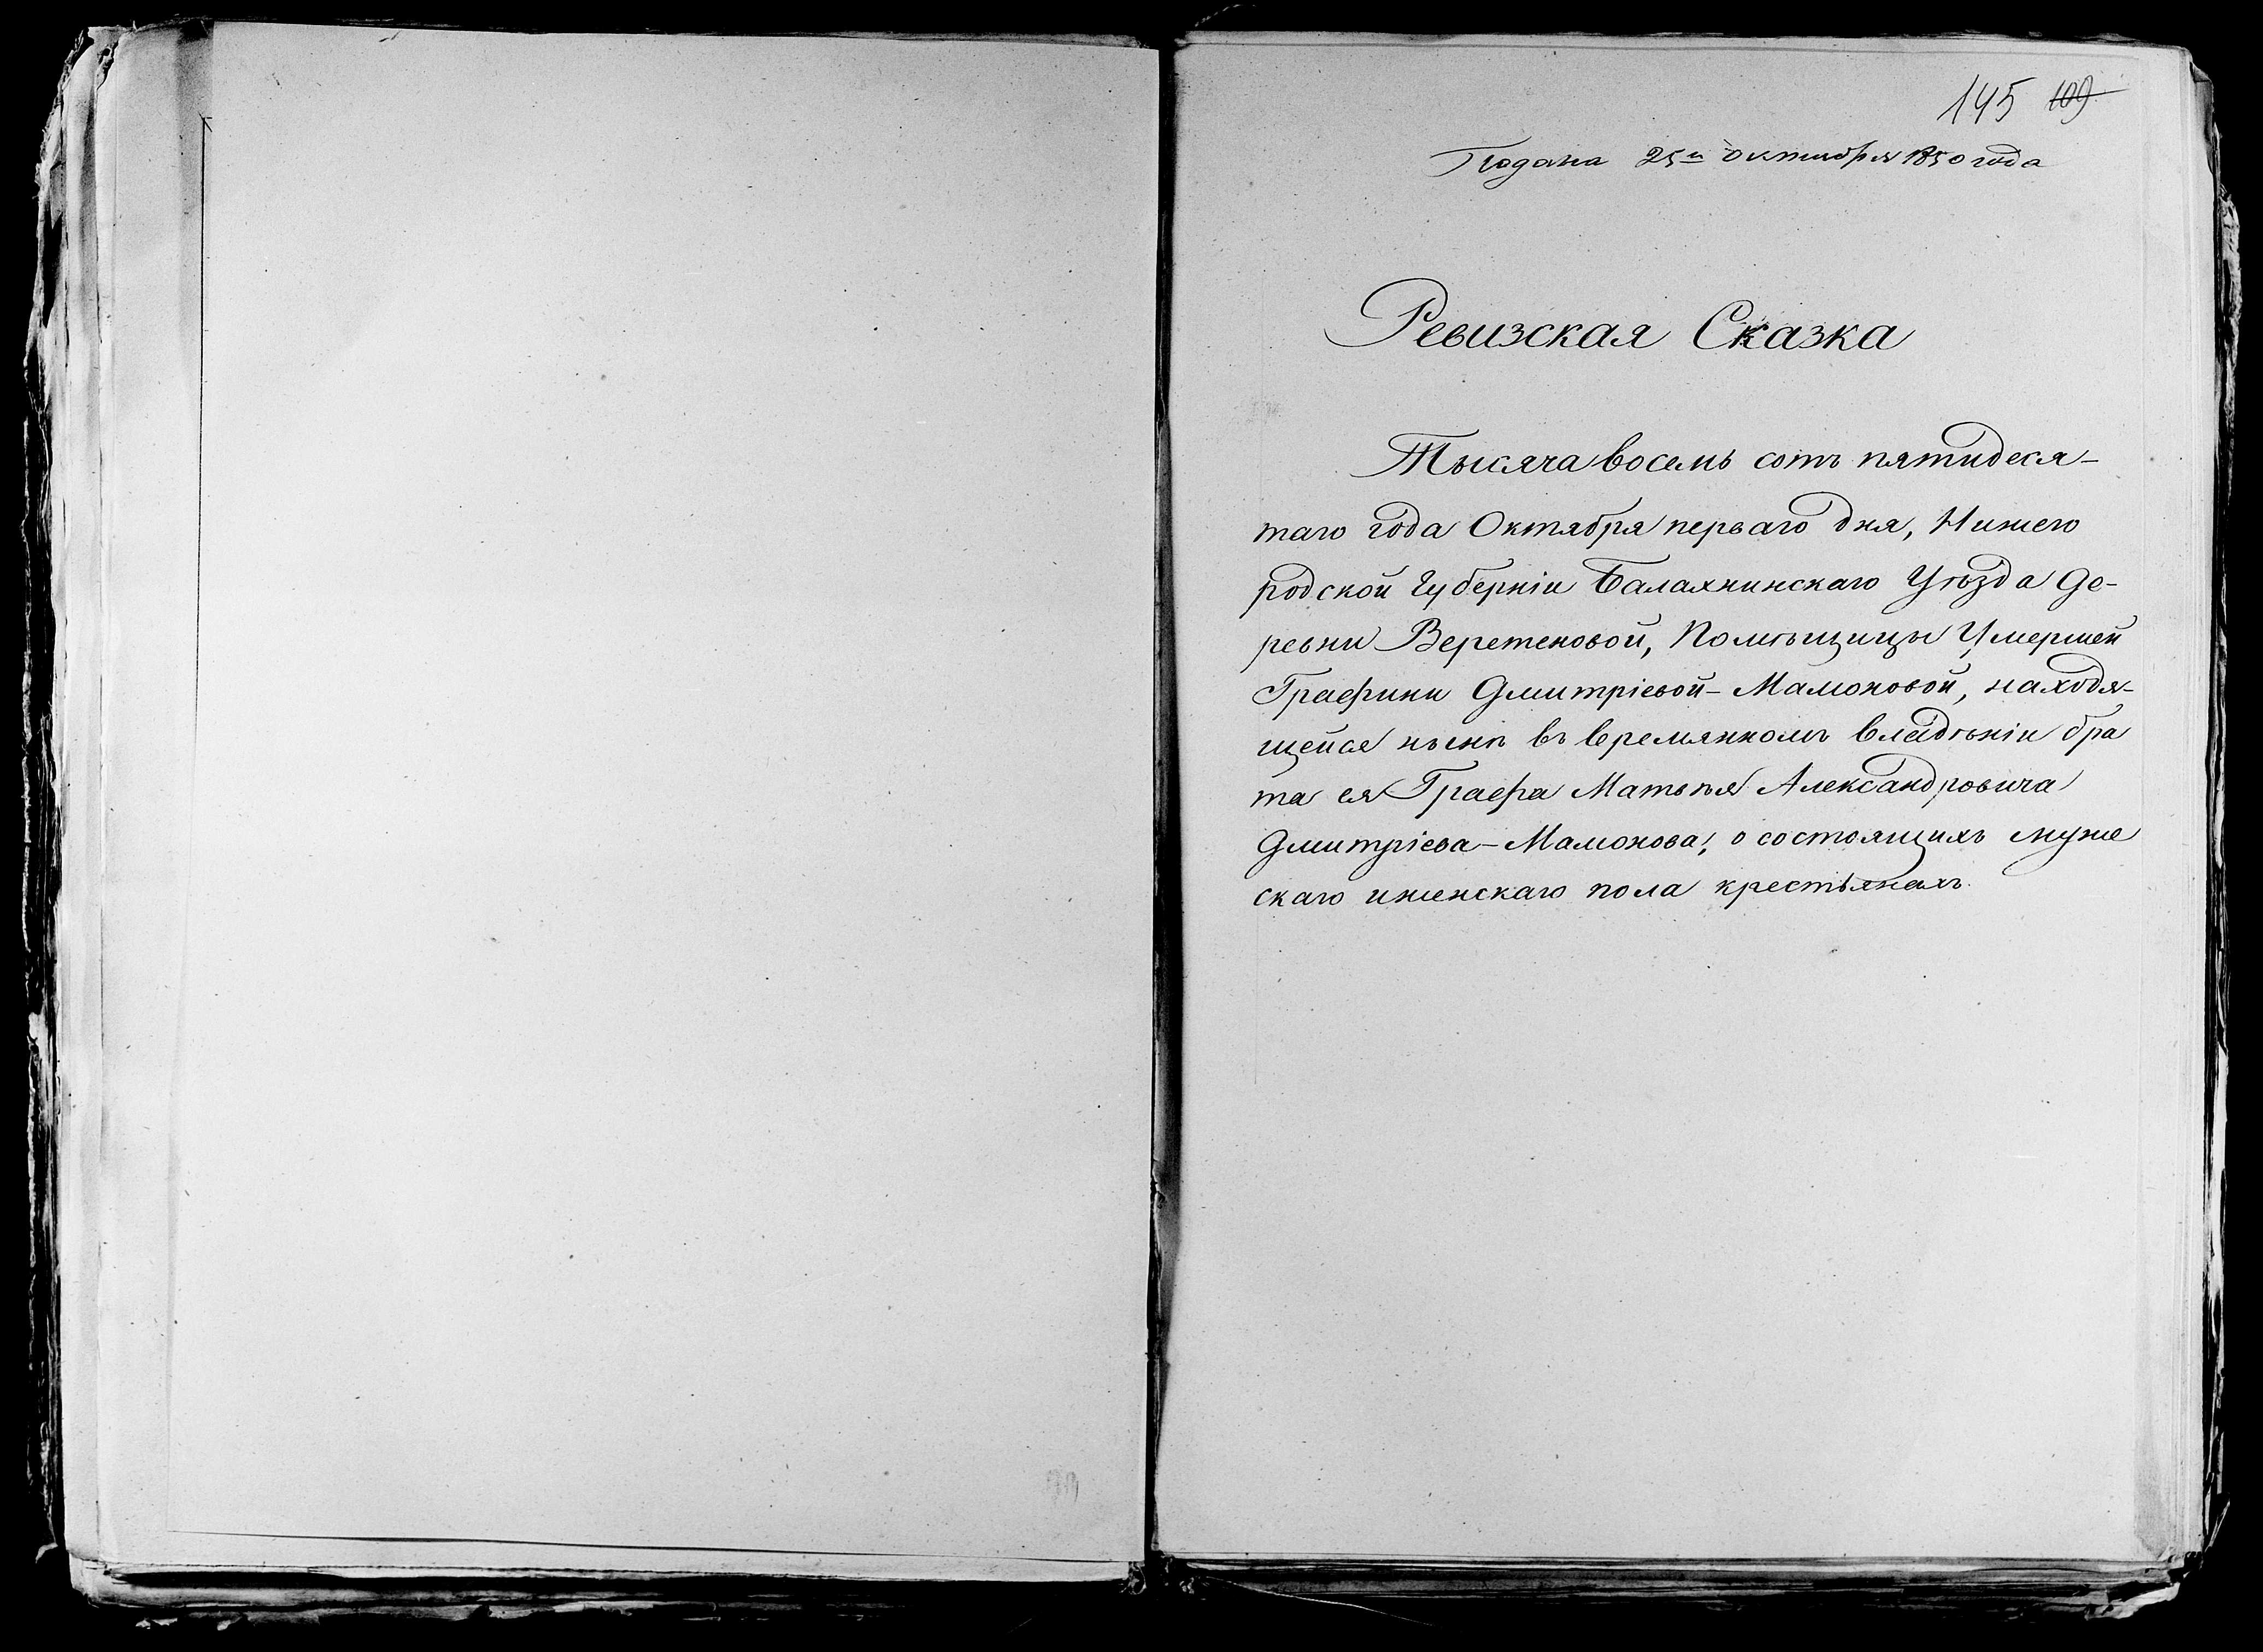 145 109
Подана 25го октября 1850 года
Ревизская Сказка
Тысяча восемь сотъ пятидеся-
таго года Октября перваго дня, Нижего
родской Губерніи Балахнинскаго Уѣзда де-
ревни Веретеновой, Помѣщицы Умершей
Графини Дмитріевой-Мамоновой, находя-
щейся нынѣ въ времянномъ владѣніи бра
та ея Графа Матвѣя Александровича
Дмитріева-Мамонова, о состоящихъ муже
скаго иженскаго пола крестьянахъ.